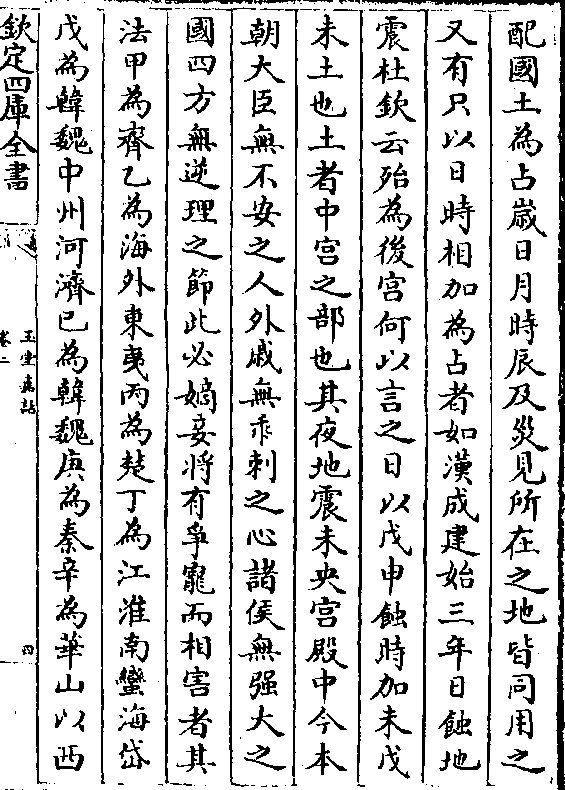 配國土為占歲日月時辰及災見所在之地皆同用之
又有只以日時相加為占者如漢成建始三年日蝕地
震杜欽云殆為後宮何以言之日以戊申蝕時加未戊
未土也土者中宮之部也其夜地震未央宮殿中今本
朝大臣無不安之人外戚無乖剌之心諸侯無强大之
國四方無逆理之節此必嫡妾將有爭寵而相害者其
法甲為齊乙為海外東夷丙為楚丁為江淮南蠻海岱
戊為韓魏中州河濟巳為韓魏庚為秦辛為華山以西
欽定四庫全書
玉堂嘉話
卷二
四